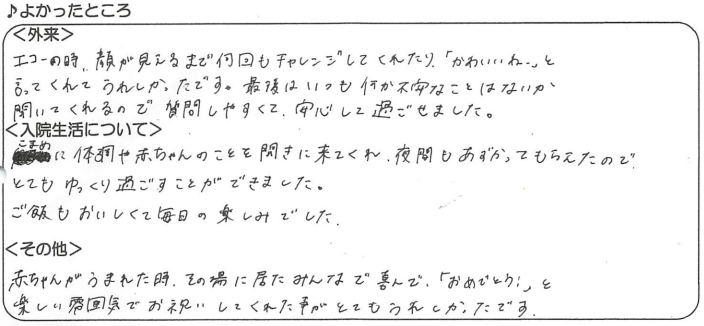 ♪よかったところ
＜外来＞
エコーの時、顔が見えるまで何回もチャレンジしてくれたり、「かわいいね～」と
言ってくれてうれしかったです。最後はいつも何か不安なことはないか
聞いてくれるので質問しやすくて、安心して過ごせました。
＜入院生活について＞
こまめに体調や赤ちゃんのことを聞きに来てくれ、夜間もあずかってもらえたので、
とてもゆっくり過ごすことができました。
ご飯もおいしくて毎日の楽しみでした。
＜その他＞
赤ちゃんがうまれた時、その場に居たみんなで喜んで、「おめでとう!」と
楽しい雰囲気でお祝いしてくれた事がとてもうれしかったです。